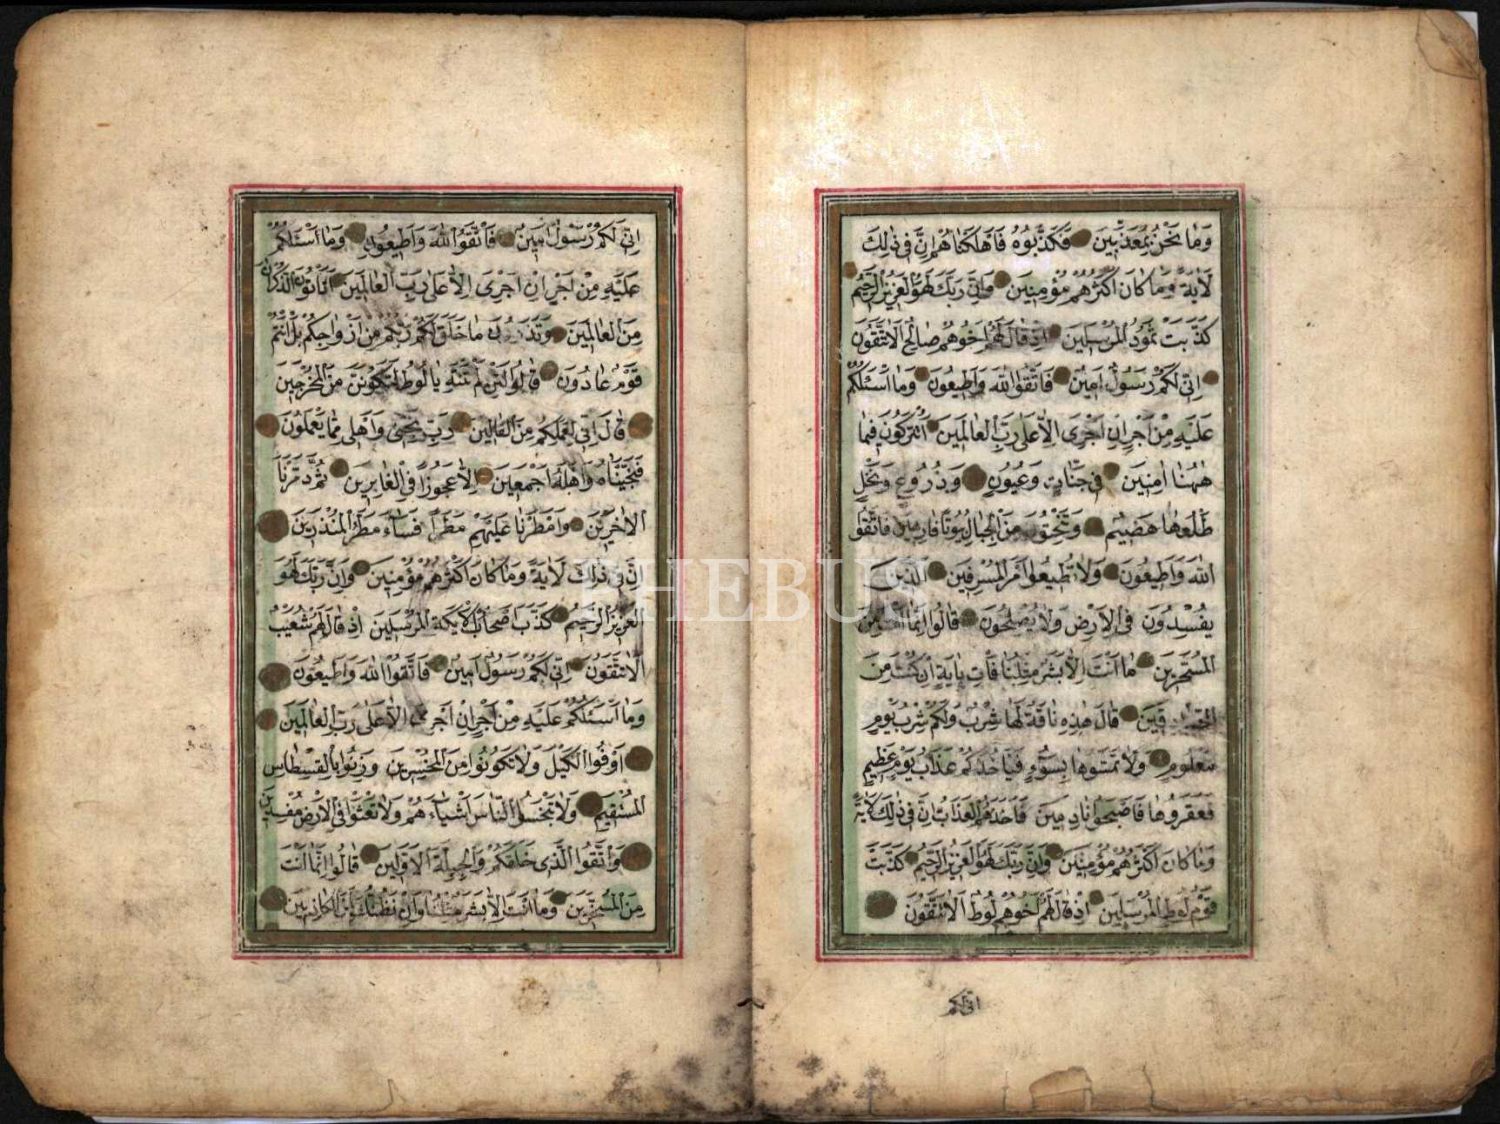 وَمَا نَحْنُ بِمُعَذَّبِينَ فَكَذَّبُوهُ فَاَهْلَكْنَاهُمْ اِنَّ فِى ذٰلِكَ
لَاٰيَةً وَمَا كَانَ اَكْثَرُهُمْ مُؤْمِنِينَ وَاِنَّ رَبَّكَ لَهُوَ الْعَزِيزُ الرَّحِيمُ
كَذَّبَتْ ثَمُودُ الْمُرْسَلِينَ اِذْ قَالَ لَهُمْ اَخُوهُمْ صَالِحٌ اَلَا تَتَّقُونَ
اِنِّى لَكُمْ رَسُولٌ اَمِينٌ فَاتَّقُوا اللّٰهَ وَاَطِيعُونِ وَمَا اَسْئَلُكُمْ
عَلَيْهِ مِنْ اَجْرٍ اِنْ اَجْرِىَ اِلَّا عَلٰى رَبِّ الْعَالَمِينَ اَتُتْرَكُونَ فِيمَا
هٰهُنَا اٰمِنِينَ فِى جَنَّاتٍ وَعُيُونٍ وَزُرُوعٍ وَنَخْلٍ
طَلْعُهَا هَضِيمٌ وَتَنْحِتُونَ مِنَ الْجِبَالِ بُيُوتًا فَارِهِينَ فَاتَّقُوا
اللّٰهَ وَاَطِيعُونِ وَلَا تُطِيعُوا اَمْرَ الْمُسْرِفِينَ اَلَّذِينَ
يُفْسِدُونَ فِى الْاَرْضِ وَلَا يُصْلِحُونَ قَالُوا اِنَّمَا اَنْتَ مِنَ
الْمُسَحَّرِينَ مَا اَنْتَ اِلَّا بَشَرٌ مِثْلُنَا فَأْتِ بِاٰيَةٍ اِنْ كُنْتَ مِنَ
الصَّادِقِينَ قَالَ هٰذِهِ نَاقَةٌ لَهَا شِرْبٌ وَلَكُمْ شِرْبُ يَوْمٍ
مَعْلُومٍ وَلَا تَمَسُّوهَا بِسُوءٍ فَيَأْخُذَكُمْ عَذَابُ يَوْمٍ عَظِيمٍ
فَعَقَرُوهَا فَاَصْبَحُوا نَادِمِينَ فَاَخَذَهُمُ الْعَذَابُ اِنَّ فِى ذٰلِكَ لَاٰيَةً
وَمَا كَانَ اَكْثَرُهُمْ مُؤْمِنِينَ وَاِنَّ رَبَّكَ لَهُوَ الْعَزِيزُ الرَّحِيمُ كَذَّبَتْ
قَوْمُ لُوطٍ الْمُرْسَلِينَ اِذْ قَالَ لَهُمْ اَخُوهُمْ لُوطٌ اَلَا تَتَّقُونَ
اِنِّى لَكُمْ
اِنِّى لَكُمْ رَسُولٌ اَمِينٌ فَاتَّقُوا اللّٰهَ وَاَطِيعُونِ وَمَا اَسْئَلُكُمْ
عَلَيْهِ مِنْ اَجْرٍ اِنْ اَجْرِىَ اِلَّا عَلٰى رَبِّ الْعَالَمِينَ اَتَأْتُونَ الذُّكْرَانَ
مِنَ الْعَالَمِينَ وَتَذَرُونَ مَا خَلَقَ لَكُمْ رَبُّكُمْ مِنْ اَزْوَاجِكُمْ بَلْ اَنْتُمْ
قَوْمٌ عَادُونَ قَالُوا لَئِنْ لَمْ تَنْتَهِ يَا لُوطُ لَتَكُونَنَّ مِنَ الْمُخْرَجِينَ
قَالَ اِنِّى لِعَمَلِكُمْ مِنَ الْقَالِينَ رَبِّ نَجِّنِى وَاَهْلِى مِمَّا يَعْمَلُونَ
فَنَجَّيْنَاهُ وَاَهْلَهُ اَجْمَعِينَ اِلَّا عَجُوزًا فِى الْغَابِرِينَ ثُمَّ دَمَّرْنَا
الْاٰخَرِينَ وَاَمْطَرْنَا عَلَيْهِمْ مَطَرًا فَسَاءَ مَطَرُ الْمُنْذَرِينَ
اِنَّ فِى ذٰلِكَ لَاٰيَةً وَمَا كَانَ اَكْثَرُهُمْ مُؤْمِنِينَ وَاِنَّ رَبَّكَ لَهُوَ
الْعَزِيزُ الرَّحِيمُ كَذَّبَ اَصْحَابُ لْئَيْكَةِ الْمُرْسَلِينَ اِذْ قَالَ لَهُمْ شُعَيْبٌ
اَلَا تَتَّقُونَ اِنِّى لَكُمْ رَسُولٌ اَمِينٌ فَاتَّقُوا اللّٰهَ وَاَطِيعُونِ
وَمَا اَسْئَلُكُمْ عَلَيْهِ مِنْ اَجْرٍ اِنْ اَجْرِىَ اِلَّا عَلٰى رَبِّ الْعَالَمِينَ
اَوْفُوا الْكَيْلَ وَلَا تَكُونُوا مِنَ الْمُخْسِرِينَ وَزِنُوا بِالْقِسْطَاسِ
الْمُسْتَقِيمِ وَلَا تَبْخَسُوا النَّاسَ اَشْيَاءَهُمْ وَلَا تَعْثَوْا فِى الْاَرْضِ مُفْسِدِينَ
وَاتَّقُوا الَّذِى خَلَقَكُمْ وَالْجِبِلَّةَ الْاَوَّلِينَ قَالُوا اِنَّمَا اَنْتَ
مِنَ الْمُسَحَّرِينَ وَمَا اَنْتَ اِلَّا بَشَرٌ مِثْلُنَا وَاِنْ نَظُنُّكَ لَمِنَ الْكَاذِبِينَ
PHEBUS